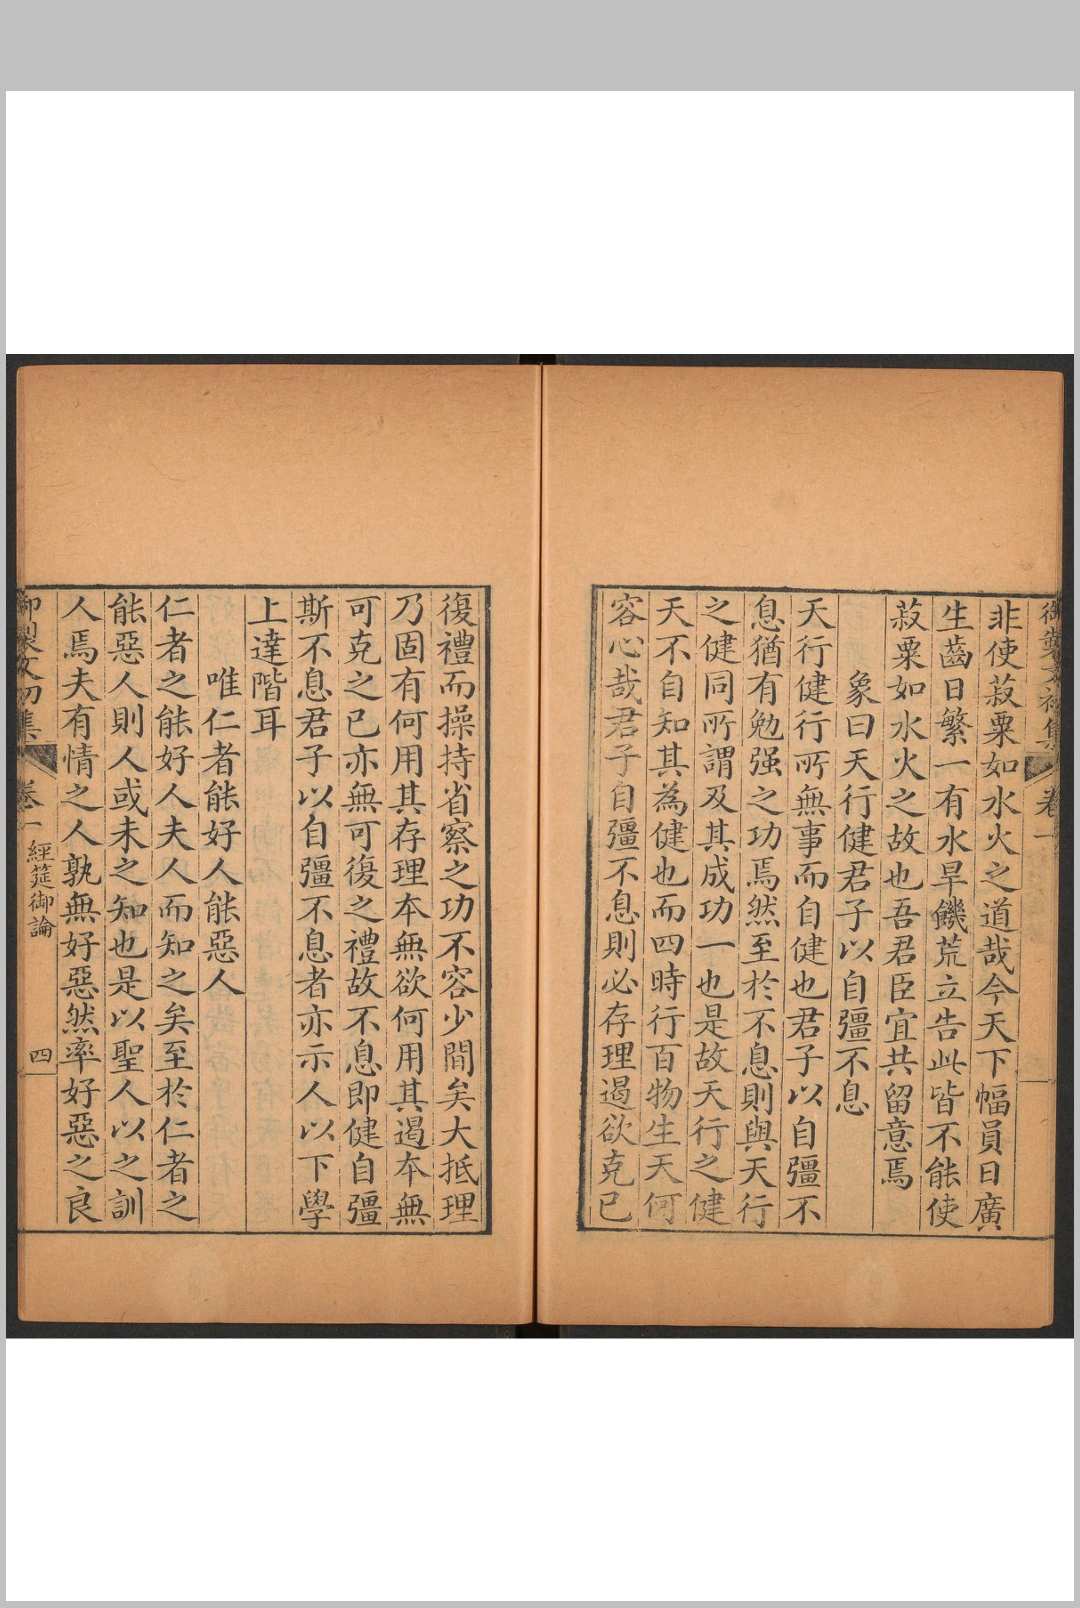 御製文初集
卷一
非使菽粟如水火之道哉今天下幅員日廣
生齒日繁一有水旱饑荒立告此皆不能使
菽粟如水火之故也吾君臣宜共留意焉
象曰天行健君子以自彊不息
天行健行所無事而自健也君子以自彊不
息猶有勉强之功焉然至於不息則與天行
之健同所謂及其成功一也是故天行之健
天不自知其為健也而四時行百物生天何
容心哉君子自彊不息則必存理遏欲克已
復禮而操持省察之功不容少間矣大抵理
乃固有何用其存理本無欲何用其遏本無
可克之已亦無可復之禮故不息即健自彊
斯不息君子以自彊不息者亦示人以下學
上達階耳
唯仁者能好人能惡人
仁者之能好人夫人而知之矣至於仁者之
能惡人則人或未之知也是以聖人以之訓
人焉夫有情之人孰無好惡然率好惡之良
御製文初集
卷一
經筵御論
四